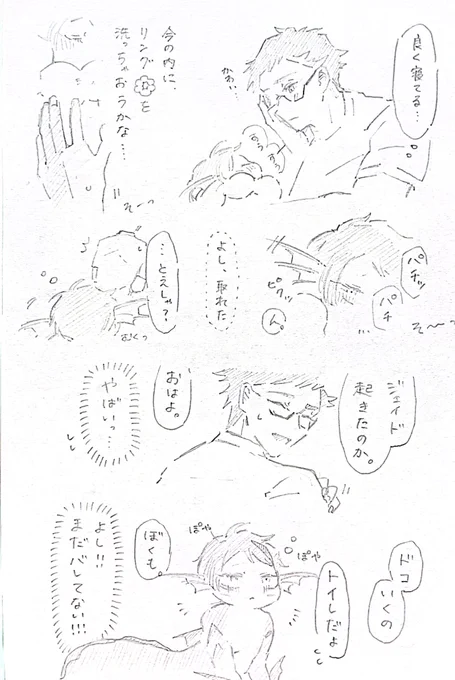 良く寝てる…
かわい…
すう
すう
今の内に、
リングを
洗っちゃおうかな…
そ〜っ
パチッ
パチ
…
そ〜〜っ
ピクッ
ん。
よし、取れた
…とえしゃ?
むくっ
ジェイド
起きたのか。
おはよ。
やばいっ…
ドコ
いくの
トイレだよ
ぽや
ぽや
ぼくも。
よし!!
まだバレてない!!!